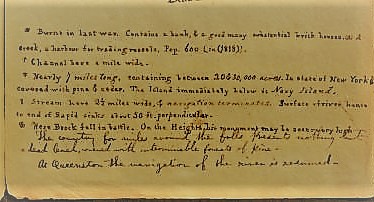 * Burnt in last war. Contains a bank, & a good many substantial brick houses. and
dock, a harbour for trading vessels. Pop. 600 (in (1818)).
† Channel here a mile wide.
* Nearly 7 miles long, containing between 20 & 30,000 acres. In state of New York &
covered with pine & cedar. The Island immediately below is Navy Island.
Stream here 2½ miles wide, & navigation terminates. Surface strives hence
to end of Rapid sinks about 50 ft. perpendicular.
Here Brock fell in battle. On the Heights, his monument may be seen very high
The country for miles around the falls presents nothing but
a dead level, covered with interminable forests of Pine -
At Queenston the navigation of the river is resumed -